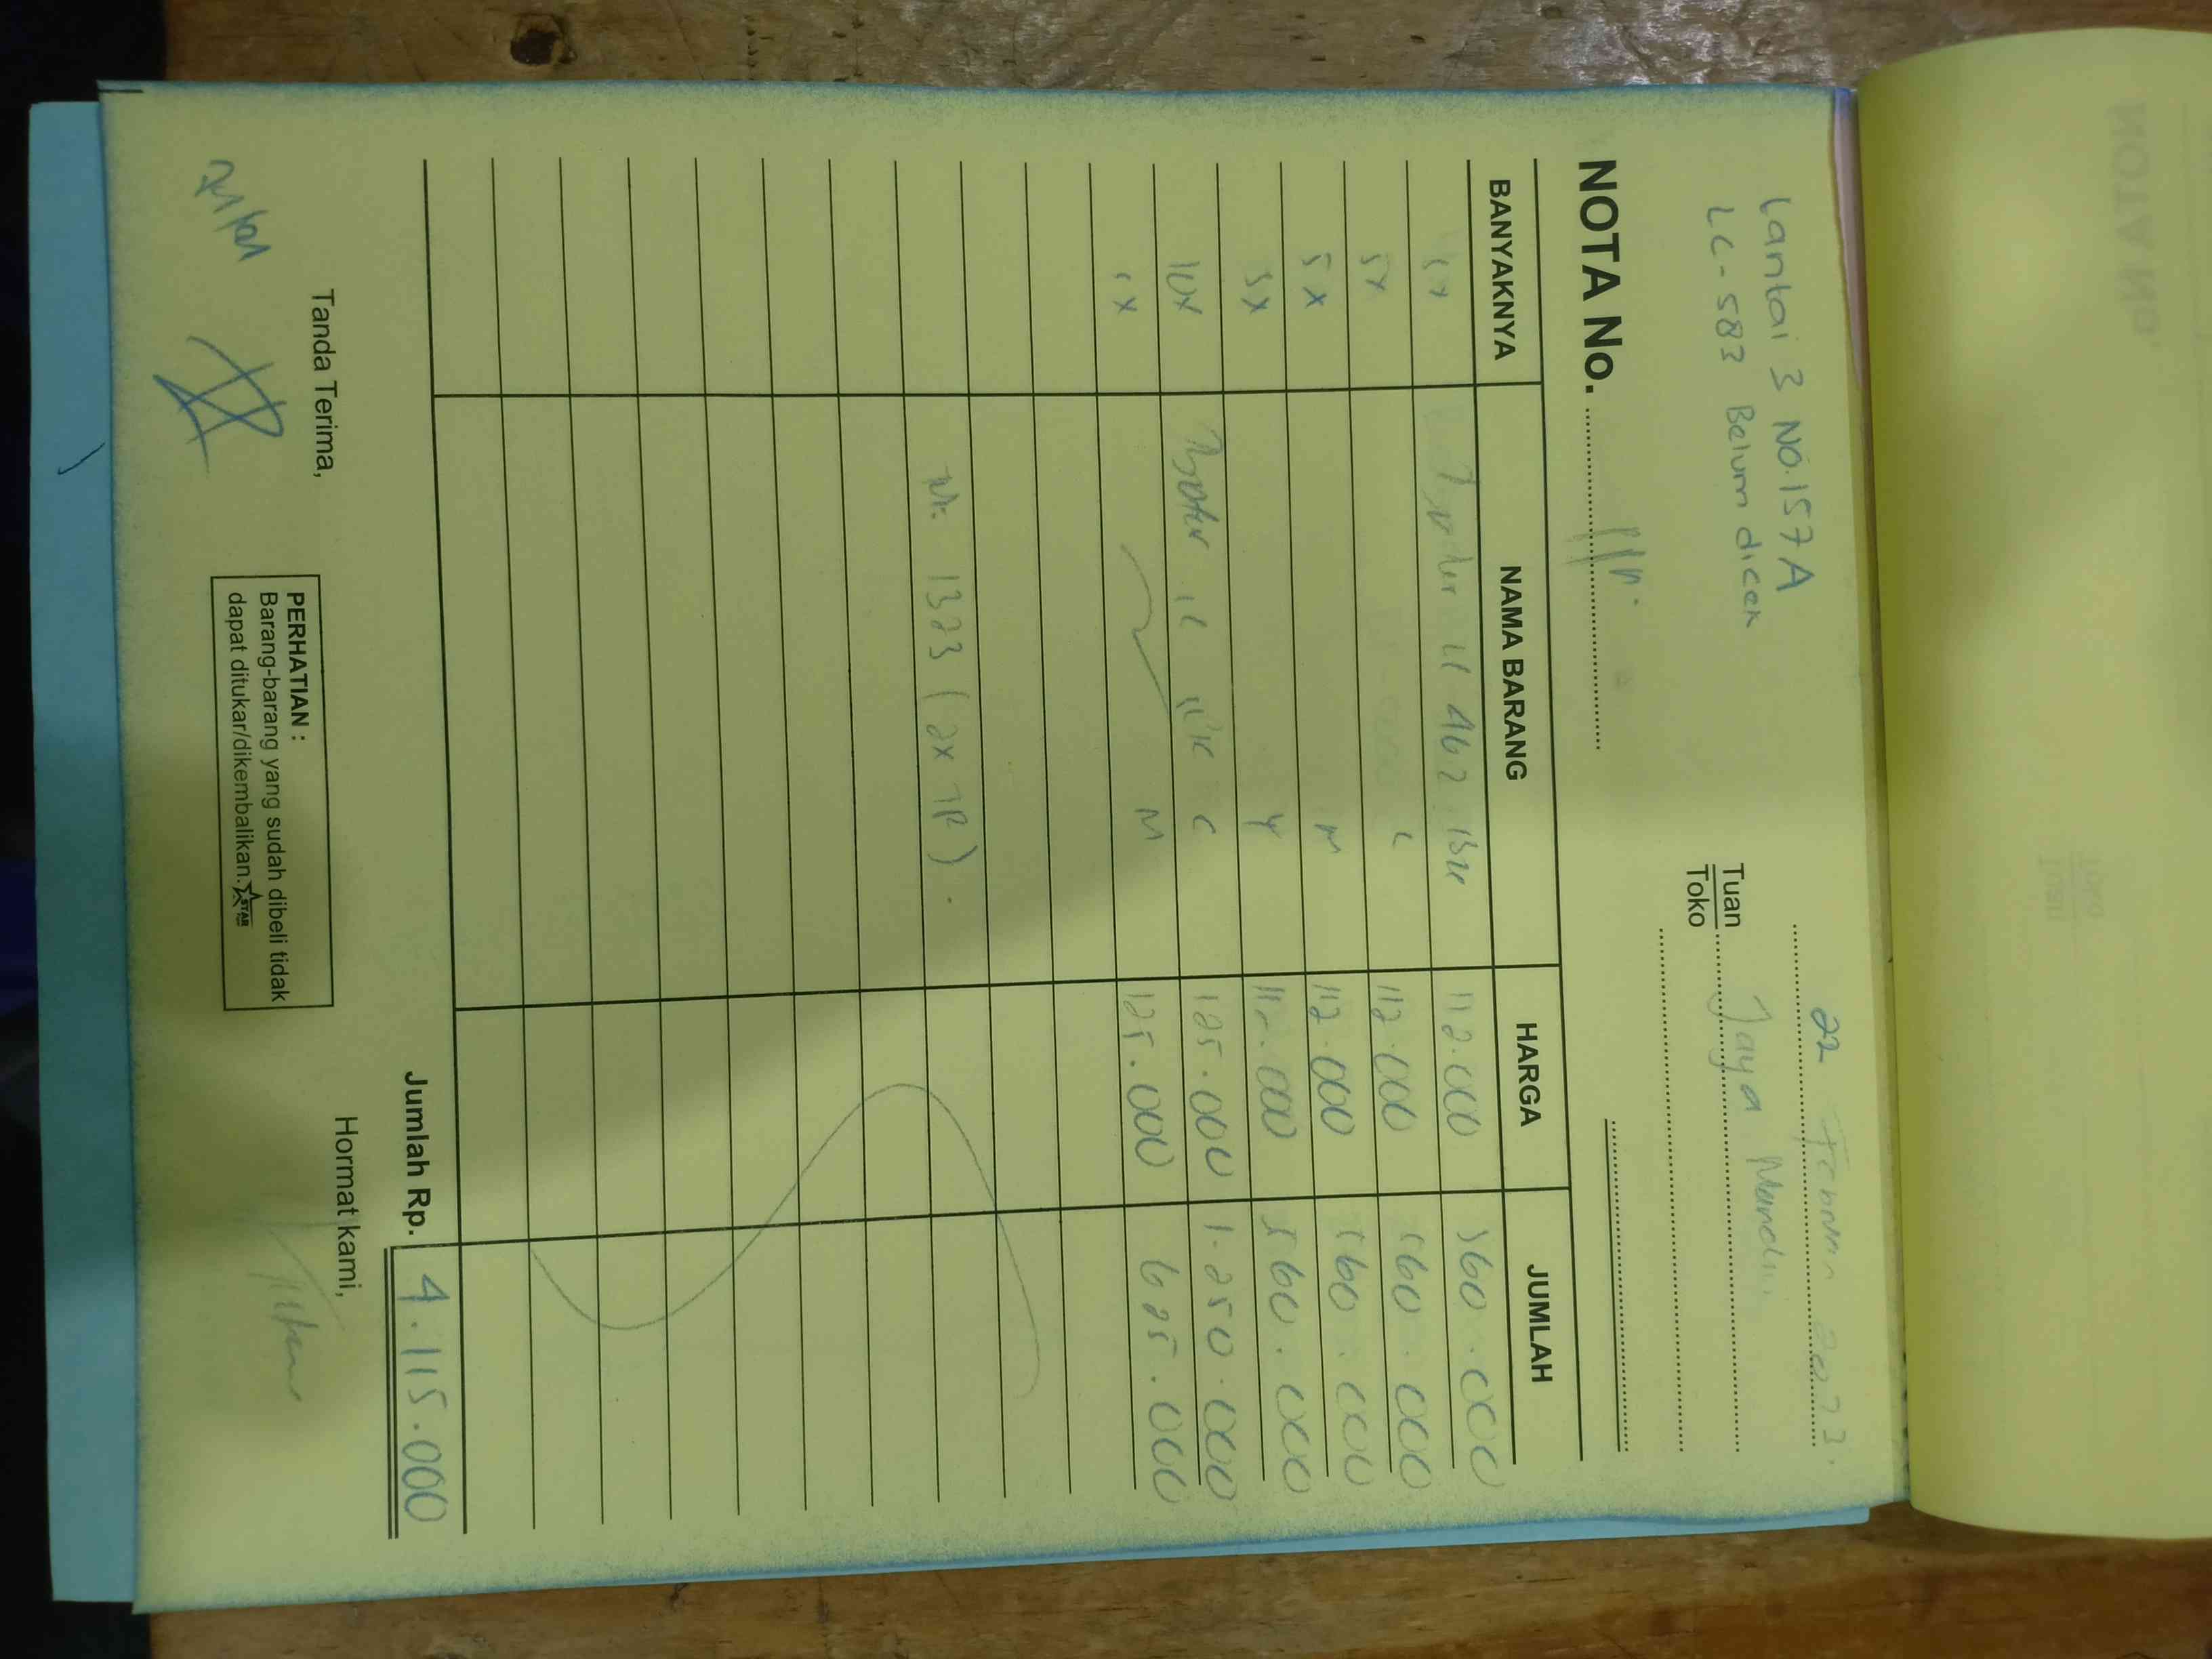 22 2023.
Lantai 3 NO.157A
LC-583 Belum dicek
Tuan Jaya Mandiri
Toko
NOTA No.
BANYAKNYA NAMA BARANG HARGA JUMLAH
5x 112.000 560.000
5x C 112.000 560.000
5x M 112.000 560.000
5x Y 112.000 560.000
10x C 125.000 1.250.000
5x M 125.000 625.000
1323 (2x TP).
Jumlah Rp. 4.115.000
Tanda Terima, Hormat kami,
PERHATIAN :
Barang-barang yang sudah dibeli tidak
dapat ditukar/dikembalikan.
STAR